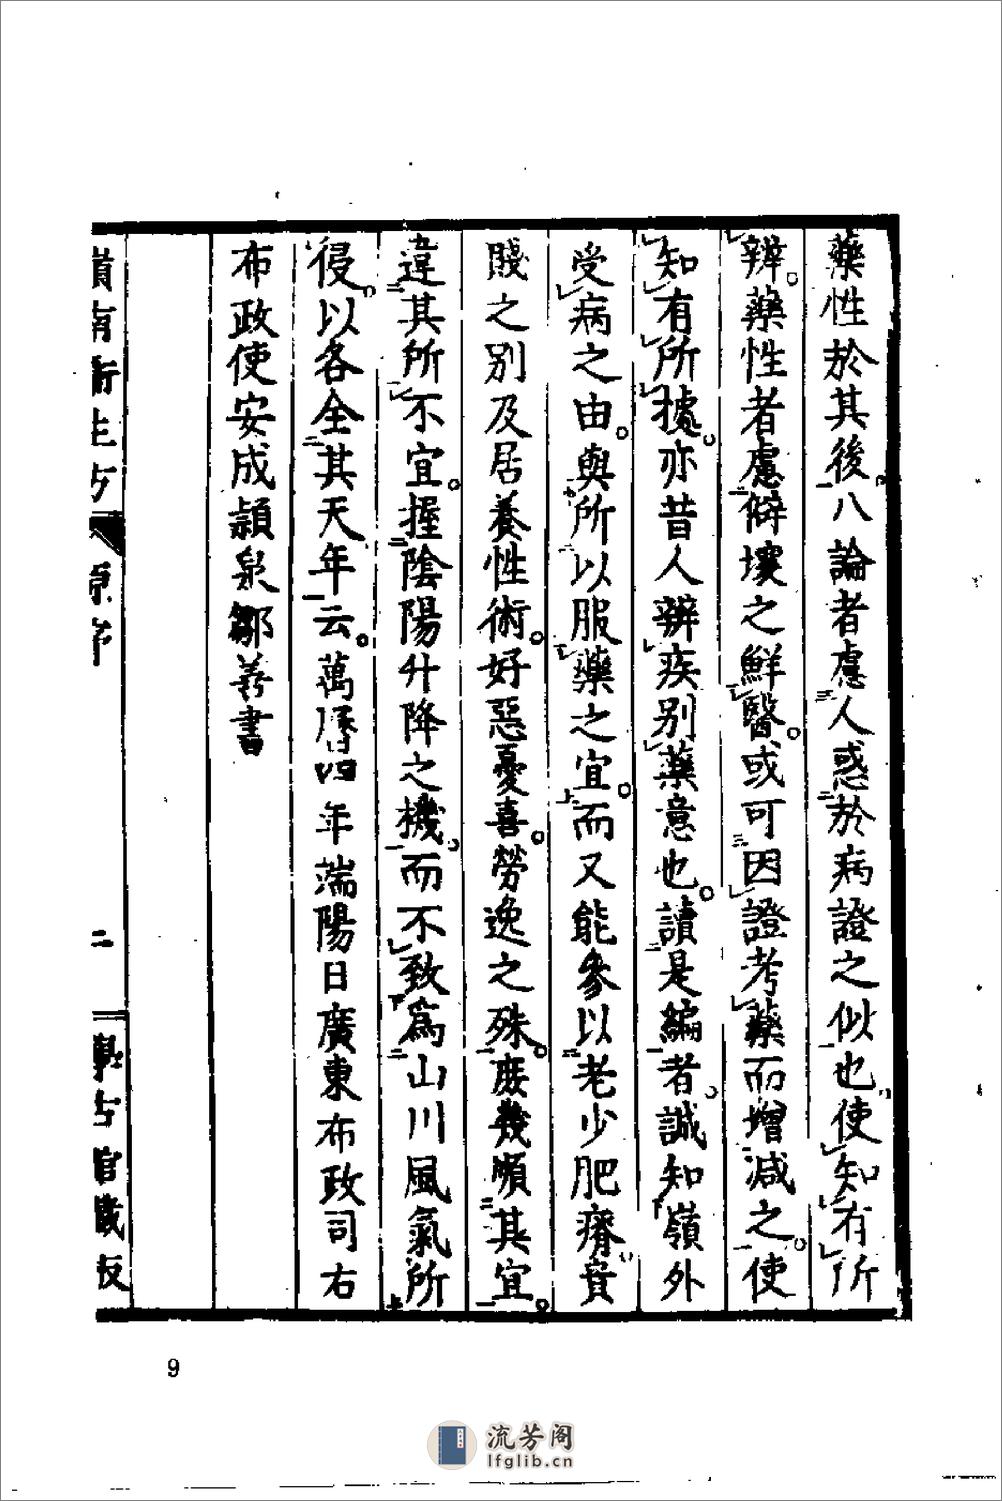 藥性於其後八論者慮人惑於病證之似也使知有所
辨藥性者慮僻壤之鮮醫或可因證考藥而增減之使
知有所據亦昔人辨疾別藥意也讀是編者誠知嶺外
受病之由與所以服藥之宜而又能參以老少肥瘠貴
賤之別及居養性術好惡憂喜勞逸之殊庶幾順其宜
違其所不宜握陰陽升降之機而不致爲山川風氣所
侵以各全其天年云萬曆四年端陽日廣東布政司右
布政使安成頴泉鄒善書
嶺南衛生方 原序 二 學古館藏板
9
流芳阁
lfglib.cn